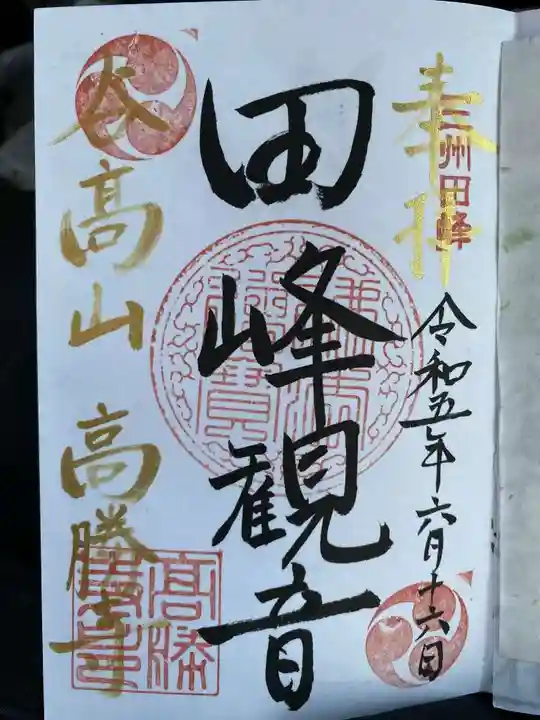 奉拝
三州田峰
令和五年六月十六日
田峰観音
谷高山 高勝寺
佛法僧寶
高勝寺印